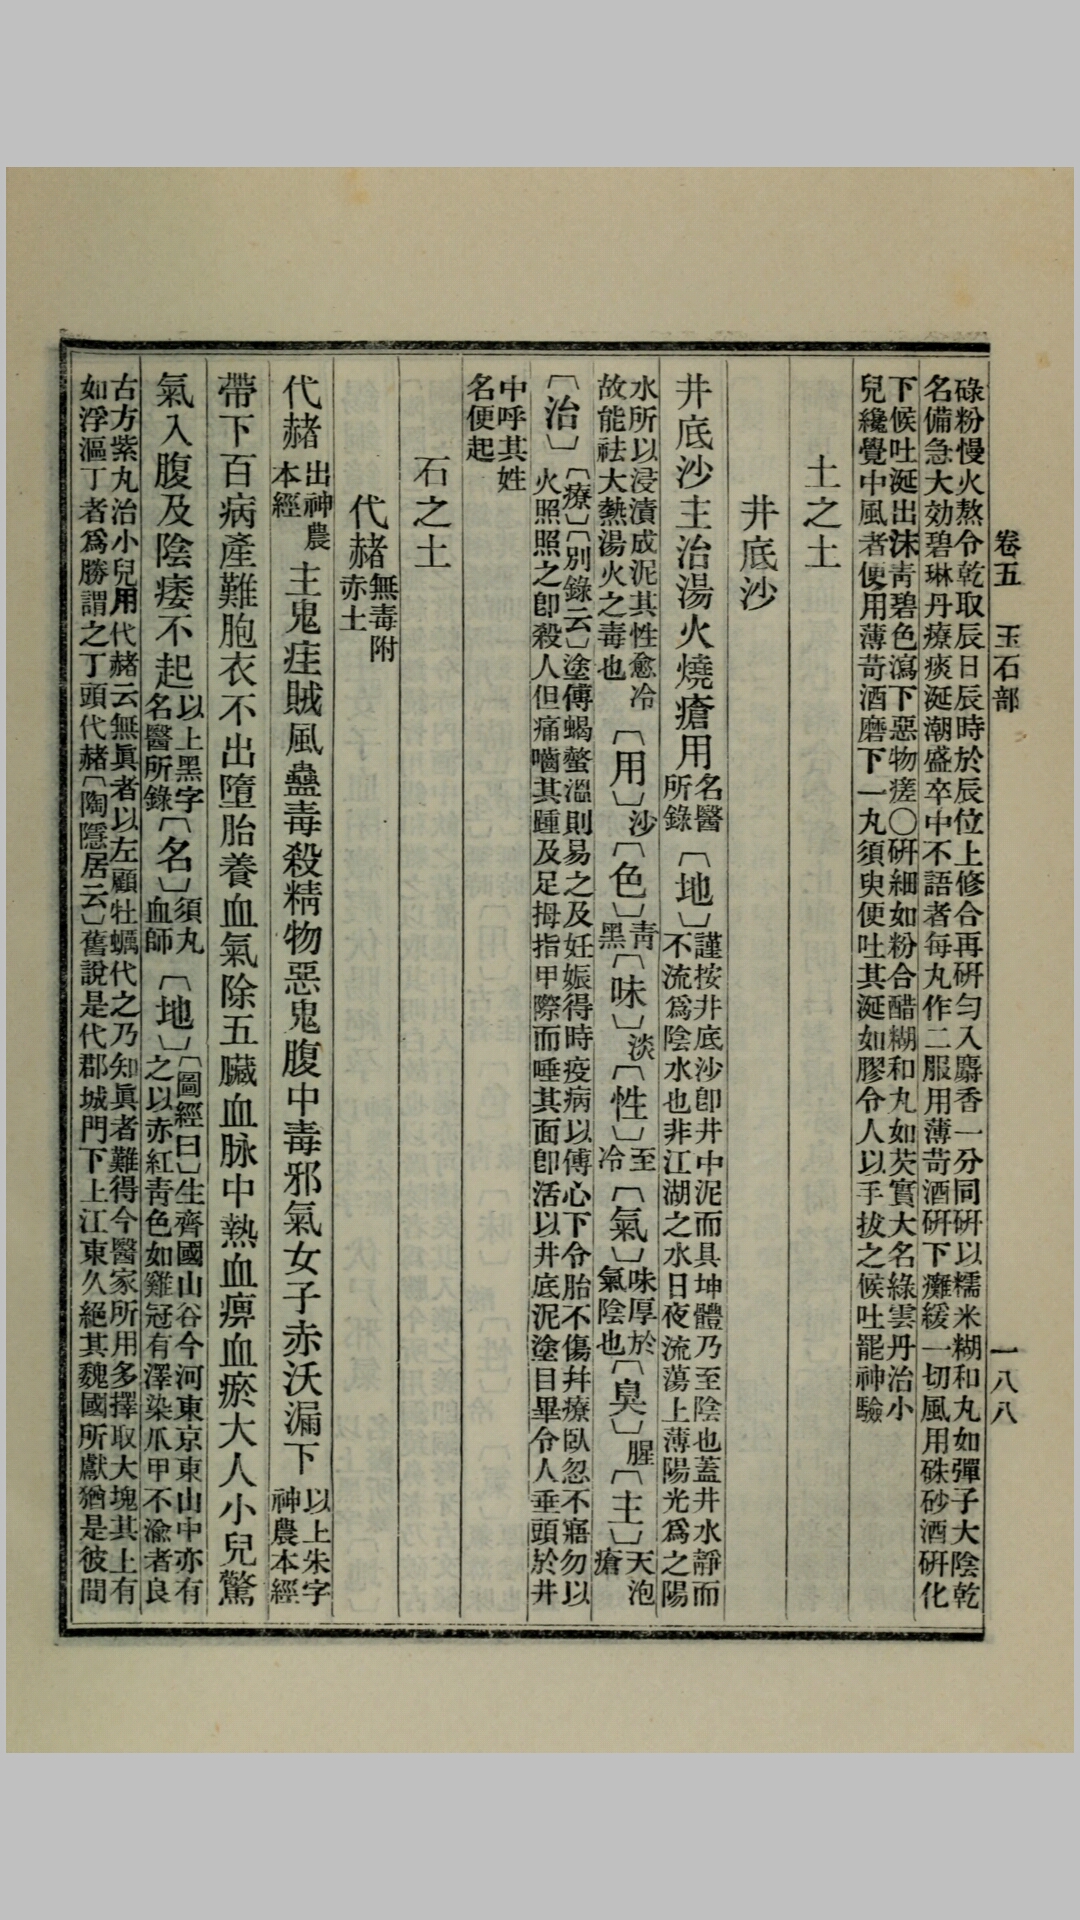 卷五　玉石部　一八八
碌粉慢火熬令乾取辰日辰時於辰位上修合再硏勻入麝香一分同硏以糯米糊和丸如彈子大陰乾
名備急大効碧琳丹療痰涎潮盛卒中不語者每丸作二服用薄荷酒硏下癱緩一切風用硃砂酒硏化
下候吐涎出沫靑碧色瀉下惡物瘥〇硏細如粉合醋糊和丸如芡實大名綠雲丹治小
兒纔覺中風者便用薄荷酒磨下一丸須臾便吐其涎如膠令人以手拔之候吐罷神驗
土之土
井底沙
井底沙主治湯火燒瘡用名醫所錄〔地〕謹按井底沙卽井中泥而具坤體乃至陰也蓋井水靜而
不流爲陰水也非江湖之水日夜流蕩上薄陽光爲之陽
水所以浸漬成泥其性愈冷
故能祛大熱湯火之毒也〔用〕沙〔色〕靑黑〔味〕淡〔性〕至冷〔氣〕味厚於氣陰也〔臭〕腥〔主〕天泡瘡
〔治〕〔療〕〔別錄云〕塗傅蝎螫溫則易之及妊娠得時疫病以傅心下令胎不傷幷療臥忽不寤勿以
火照照之卽殺人但痛嚙其踵及足拇指甲際而唾其面卽活以井底泥塗目畢令人垂頭於井
中呼其姓
名便起
石之土
代赭無毒附赤土
代赭出神農本經主鬼疰賊風蠱毒殺精物惡鬼腹中毒邪氣女子赤沃漏下以上朱字神農本經
帶下百病產難胞衣不出墮胎養血氣除五臟血脉中熱血痹血瘀大人小兒驚
氣入腹及陰痿不起以上黑字名醫所錄〔名〕須丸血師〔地〕〔圖經曰〕生齊國山谷今河東京東山中亦有
之以赤紅靑色如雞冠有澤染爪甲不渝者良
古方紫丸治小兒用代赭云無眞者以左顧牡蠣代之乃知眞者難得今醫家所用多擇取大塊其上有
如浮漚丁者爲勝謂之丁頭代赭〔陶隱居云〕舊說是代郡城門下土江東久絕其魏國所獻猶是彼間